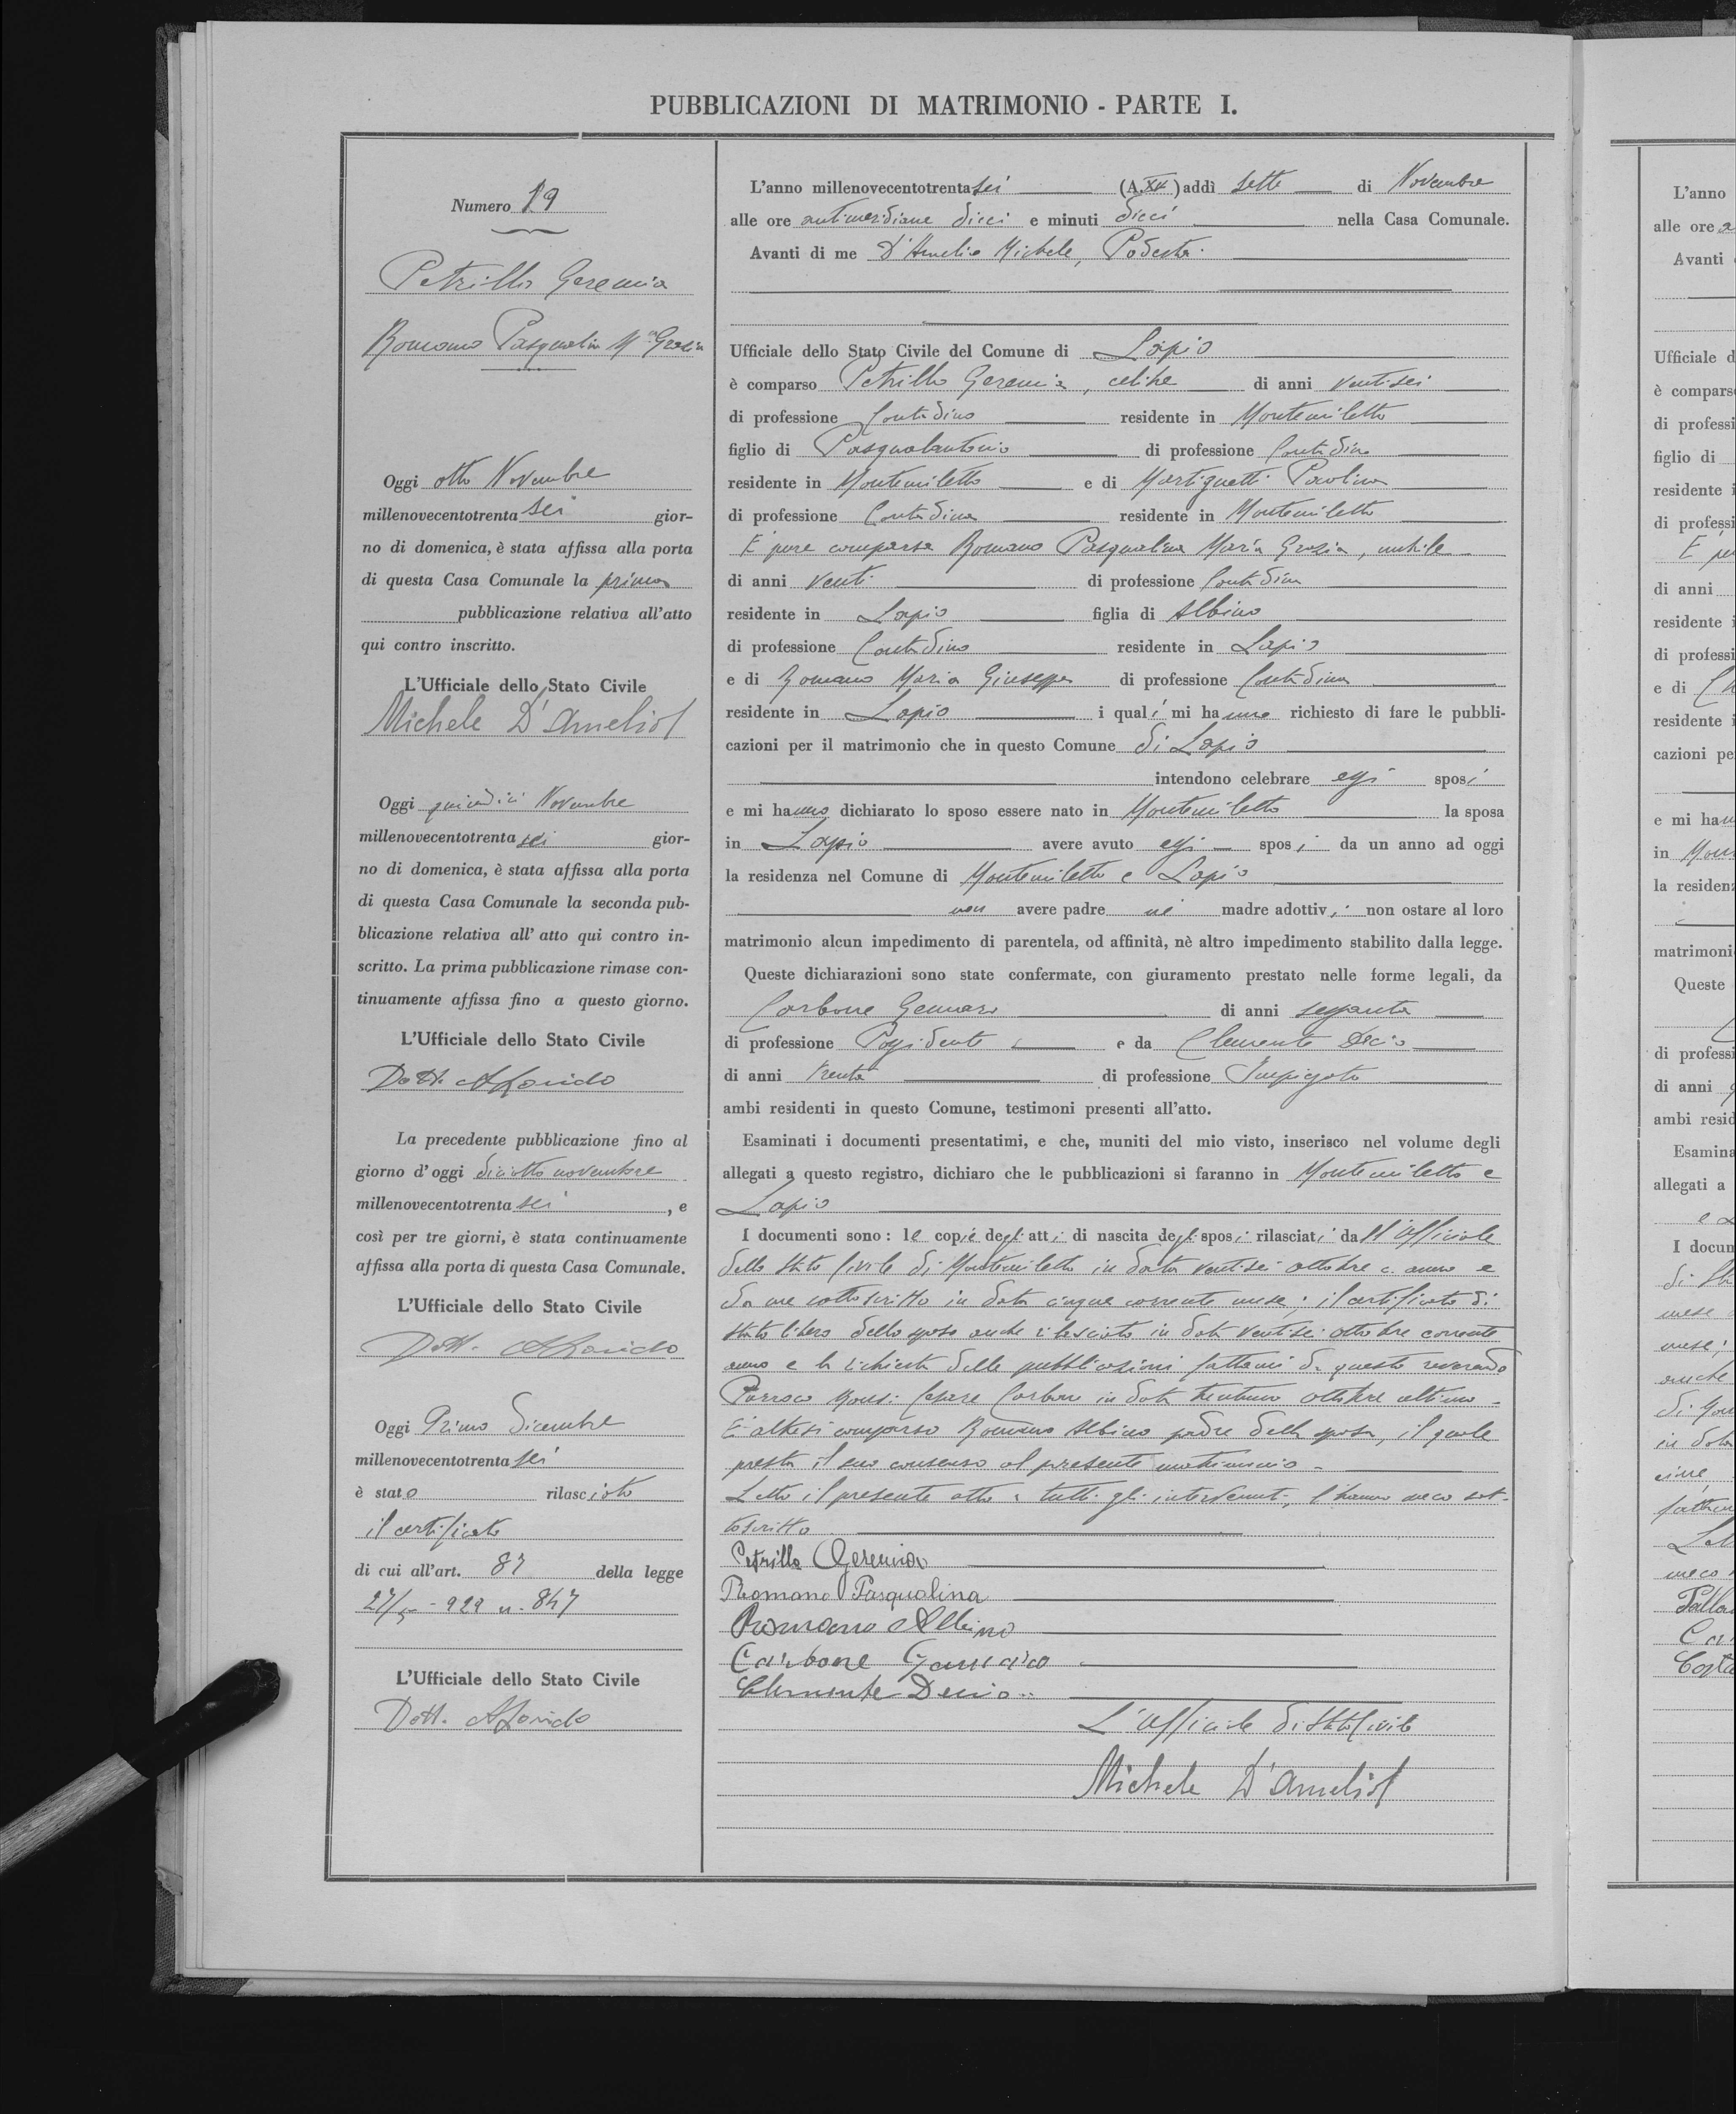 PUBBLICAZIONI DI MATRIMONIO - PARTE I.
Numero 19
Petrillo Geremia
Romano Pasqualina Mª Grazia
Oggi otto Novembre
millenovecentotrenta sei gior-
no di domenica, è stata affissa alla porta
di questa Casa Comunale la prima
pubblicazione relativa all'atto
qui contro inscritto.
L'Ufficiale dello Stato Civile
Michele D'Amelio
Oggi quindici Novembre
millenovecentotrenta sei gior-
no di domenica, è stata affissa alla porta
di questa Casa Comunale la seconda pub-
blicazione relativa all' atto qui contro in-
scritto. La prima pubblicazione rimase con-
tinuamente affissa fino a questo giorno.
L'Ufficiale dello Stato Civile
Dott.
La precedente pubblicazione fino al
giorno d'oggi diciotto novembre
millenovecentotrenta sei , e
così per tre giorni, è stata continuamente
affissa alla porta di questa Casa Comunale.
L'Ufficiale dello Stato Civile
Dott.
Oggi Primo Dicembre
millenovecentotrenta sei
è stato rilasciato
il certificato
di cui all'art. 87 della legge
27/5 - 929 n. 847
L'Ufficiale dello Stato Civile
Dott.
L'anno millenovecentotrenta sei (A. XV) addì sette di Novembre
alle ore antimeridiane dieci e minuti dieci nella Casa Comunale.
Avanti di me D'Amelio Michele, Podestà
Ufficiale dello Stato Civile del Comune di Lapio
è comparso Petrillo Geremia, celibe di anni ventisei
di professione Contadino residente in Montemiletto
figlio di Pasqualantonio di professione Contadino
residente in Montemiletto e di Martignetti Paolina
di professione Contadina residente in Montemiletto
E' pure comparsa Romano Pasqualina Maria Grazia, nubile
di anni venti di professione Contadina
residente in Lapio figlia di Albino
di professione Contadino residente in Lapio
e di Romano Maria Giuseppa di professione Contadina
residente in Lapio i quali mi hanno richiesto di fare le pubbli-
cazioni per il matrimonio che in questo Comune di Lapio
intendono celebrare essi sposi
e mi hanno dichiarato lo sposo essere nato in Montemiletto la sposa
in Lapio avere avuto essi sposi da un anno ad oggi
la residenza nel Comune di Montemiletto e Lapio
non avere padre nè madre adottivi non ostare al loro
matrimonio alcun impedimento di parentela, od affinità, nè altro impedimento stabilito dalla legge.
Queste dichiarazioni sono state confermate, con giuramento prestato nelle forme legali, da
Carbone Gennaro di anni sessanta
di professione Possidente e da Clemente Decio
di anni trenta di professione Impiegato
ambi residenti in questo Comune, testimoni presenti all'atto.
Esaminati i documenti presentatimi, e che, muniti del mio visto, inserisco nel volume degli
allegati a questo registro, dichiaro che le pubblicazioni si faranno in Montemiletto e
Lapio
I documenti sono : le copie degli atti di nascita degli sposi rilasciati dall'Ufficiale
dello Stato Civile di Montemiletto in data ventisei ottobre c. anno e
da me sottoscritto in data cinque corrente mese; il certificato di
stato libero dello sposo anche rilasciato in data ventisei ottobre corrente
anno e la richiesta delle pubblicazioni fattami da questo reverendo
Parroco Mons: Cesare Carbone in data trentuno ottobre ultimo -
E' altresi comparso Romano Albino padre della sposa, il quale
presta il suo consenso al presente matrimonio -
Letto il presente atto a tutti gli intervenuti, l'hanno meco sot-
toscritto
Petrillo Geremia
Romano Pasqualina
Romano Albino
Carbone Gennaro
Clemente Decio
L'Ufficiale di Stato Civile
Michele D'Amelio
L'anno
alle ore
Avanti
Ufficiale d
è compars
di professi
figlio di
residente i
di professi
E pu
di anni
residente i
di professi
e di
residente i
cazioni pe
e mi han
in Mon
la residen
matrimoni
Queste
di professi
di anni
ambi resid
Esamina
allegati a
I docum
mese
mese;
anche
in data
meco